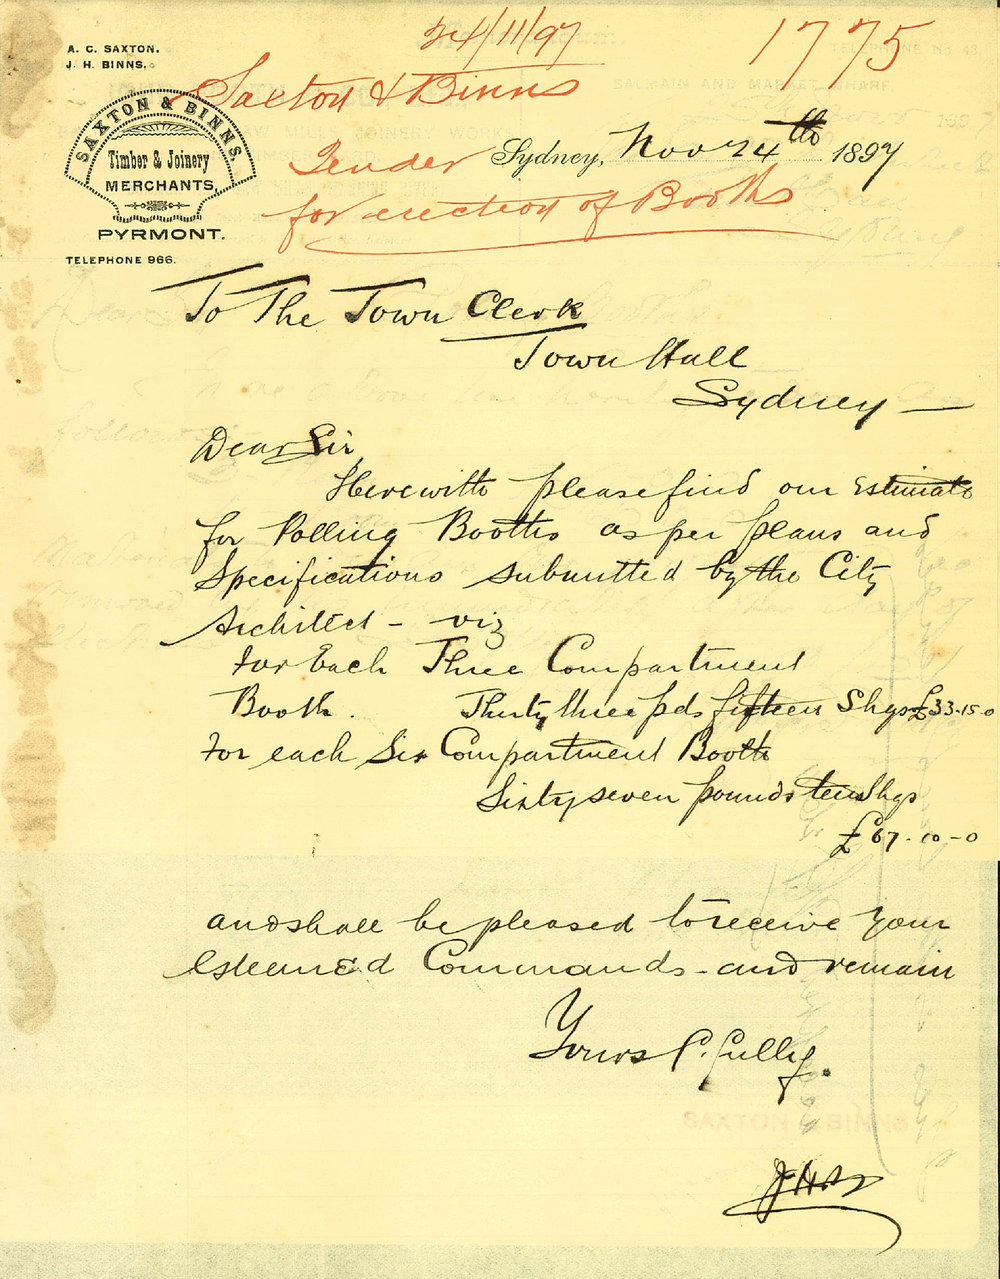 24/11/97
1775
A. C. SAXTON.
J. H. BINNS.
Saxton & Binns
SAXTON & BINNS.
Timber & Joinery
MERCHANTS,
PYRMONT.
TELEPHONE 966.
Tender
for erection of Booths
Sydney, Nov 24th 1897
To The Town Clerk
Town Hall
Sydney —
Dear Sir,
Herewith please find our Estimate
for Polling Booths as per plans and
Specifications submitted by the City
Architect - viz
For Each Three Compartment
Booth. Thirty three pds fifteen Shgs £33-15-0
For each Six Compartment Booth
Sixty seven pounds ten Shgs
£67-10-0
and shall be pleased to receive your
Esteemed Commands - and remain
Yours
SAXTON & BINNS